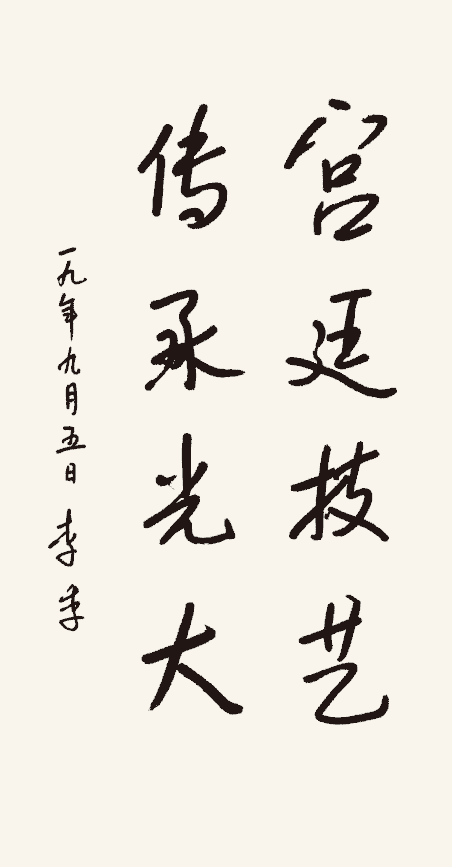 宫廷技艺
传承光大
一九年九月五日 李季